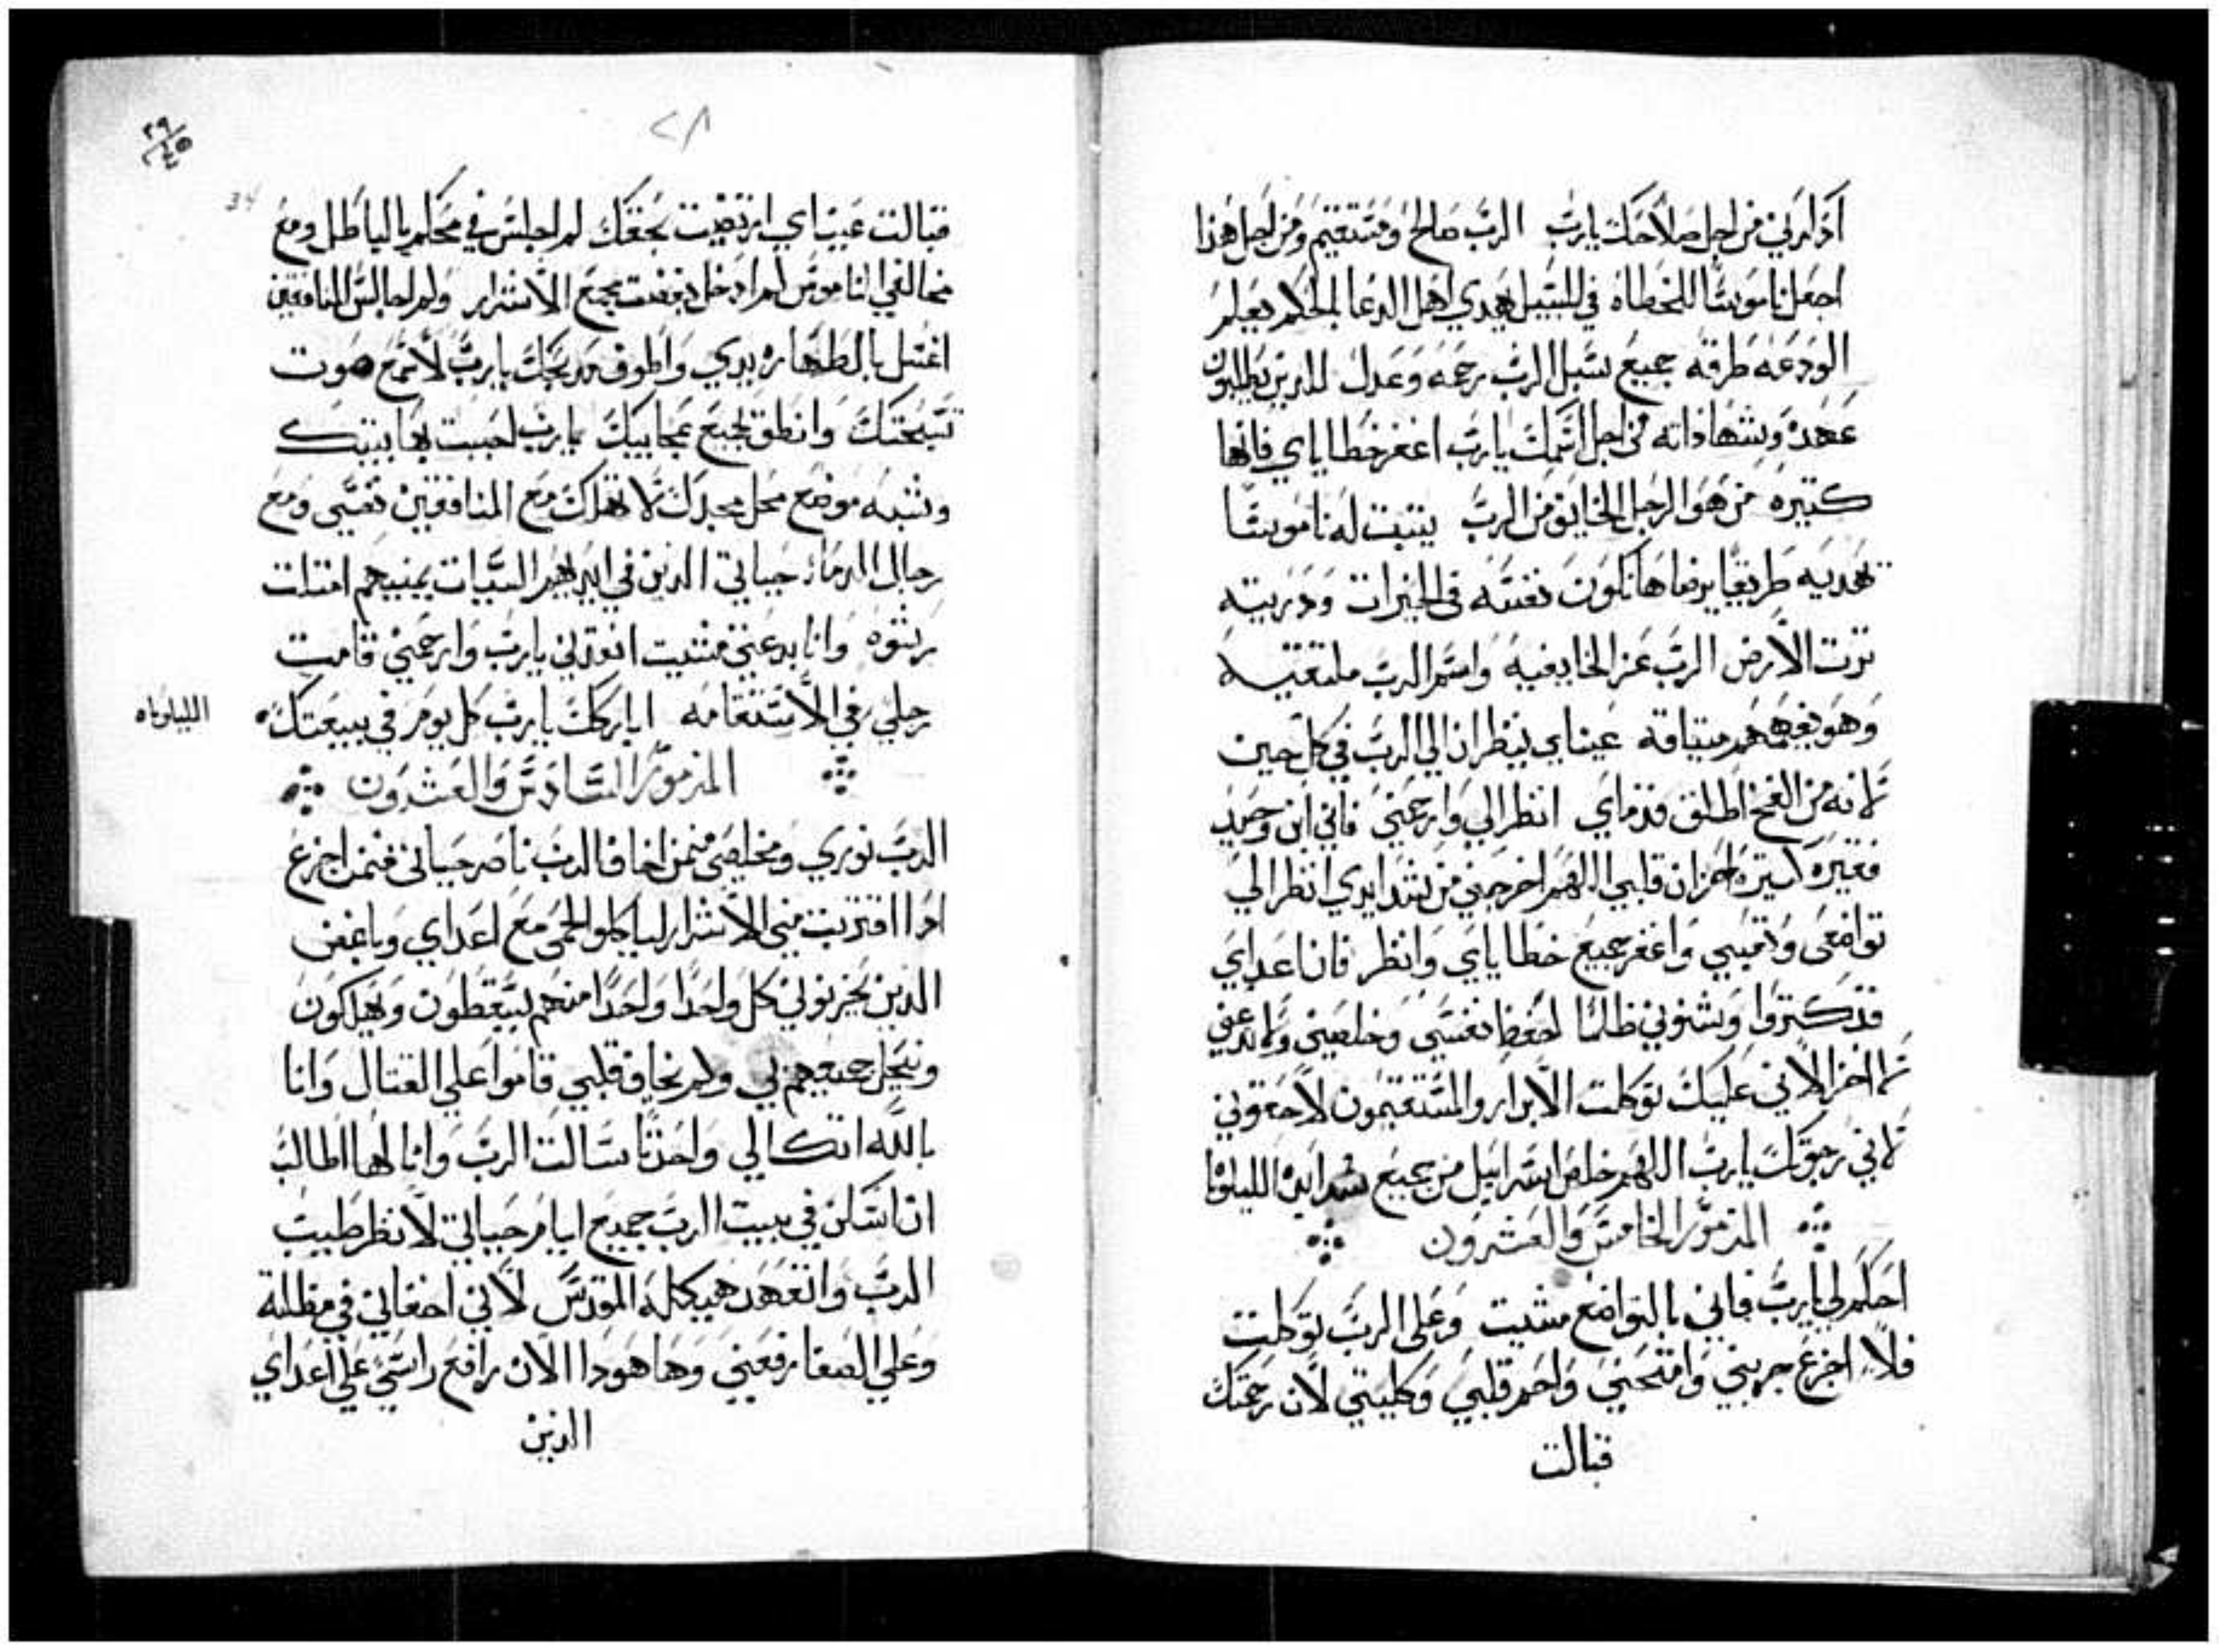 اذكرني من اجل صلاحك يارب الرب صالح ومستقيم ومن اجل هذا
اجعل ناموسًا للخطاه في السبيل يهدي اهل الدعا بالحكم يعلم
الودعه طرقه جميع سبل الرب رحمه وعدل للدين يطلبون
عهده وشهاداته من اجل اسمك يارب اغفر خطاياي فانها
كتيره من هو الرجل الخايف من الرب يتبت له ناموسًا
تهديه طريقًا يرضاها تكون نفسه في الخيرات ودريته
ترت الارض الرب عز الخايفيه واسم الرب ملتقيه
وهو يفهمهم ميتاقه عيناي ينظران الي الرب في كل حين
لانه من الفخ اطلق قدماي انظر الي وارحمني فاني ابن وحيد
فقيره كتيره احزان قلبي اللهم اخرجني من شدايدي انظر الي
تواضعي وتعبي واغفر جميع خطاياي وانظر فان اعداي
قد كتروا وشنوني ظلمًا احفظ نفسي وخلصني ولا تدعني
لالخزا لاني عليك توكلت الابرار والمستقيمون لاحقوني
لاني رجوتك يارب اللهم خلص اسراييل من جميع شدايده الليلويا
المزمور الخامس والعشرون
احكم لي يارب فاني بالتواضع مشيت وعلي الرب توكلت
فلا اجزع جربني وامتحني واحم قلبي وكليتي لان رحمتك
قبالت
٢٨
قبالت عيناي ارتضيت بحقك لم اجلس في محكم بالباطل ومع
مخالفي الناموس لم ادخل بغضت مجمع الاشرار ولم اجالس المنافقين
اغسل بالطهاره يدي واطوف مدبحك يارب لاسمع صوت
تسبحتك وانطق بجميع عجايبك يارب احببت بها بيتك
وشبه موضع محل مجدك لا تهلك مع المنافقين نفسي ومع
رجال الدما حياتي الدين في ايديهم السيات يمينهم امتلات
رشوه وانا بدعتي مشيت انقدني يارب وارحمني قامت
رجلي في الاستقامه اباركك يارب كل يوم في بيعتك الليلوياه
المزمور السادس والعشرون
الرب نوري ومخلصي فمن اخاف الرب ناصر حياتي فممن اجزع
ادا اقتربت مني الاشرار لياكلو لحمي مع اعداي وباغضي
الدين يحزنوني كل واحدًا واحدًا منهم يسقطون ويهلكون
وتبجل جميعهم بي ولم يخاف قلبي قاموا علي القتال وانا
بالله اتكالي واحدتًا سالت الرب وانا لها اطالب
ان اسكن في بيت الرب جميع ايام حياتي لانظر طيب
الرب واتعهد هيكله المقدس لاني اخفاني في مظلته
وعلي الصفا رفعني وها هودا الان رافع راسي علي اعداي
الدين